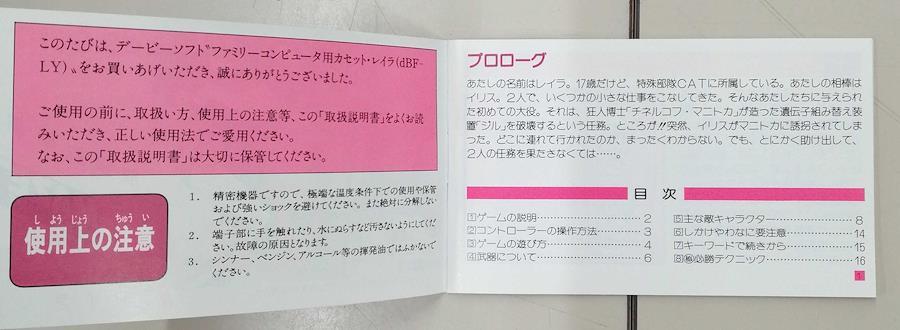 このたびは、デービーソフト〝ファミリーコンピュータ用カセット・レイラ(dBF-
LY)〟をお買いあげいただき、誠にありがとうございました。
ご使用の前に、取扱い方、使用上の注意等、この「取扱説明書」をよくお読
みいただき、正しい使用法でご愛用ください。
なお、この「取扱説明書」は大切に保管してください。
しようじょう ちゅうい
使用上の注意
1. 精密機器ですので、極端な温度条件下での使用や保管
および強いショックを避けてください。また絶対に分解しない
でください。
2. 端子部に手を触れたり、水にぬらすなど汚さないようにしてくだ
さい。故障の原因となります。
3. シンナー、ベンジン、アルコール等の揮発油ではふかないで
ください。
プロローグ
あたしの名前はレイラ。17歳だけど、特殊部隊CATに所属している。あたしの相棒は
イリス。2人で、いくつかの小さな仕事をこなしてきた。そんなあたしたちに与えられ
た初めての大役。それは、狂人博士「チネルコフ・マニトカ」が造った遺伝子組み替え装
置「ジル」を破壊するという任務。ところが!!突然、イリスがマニトカに誘拐されてしま
った。どこに連れて行かれたのか、まったくわからない。でも、とにかく助け出して、
2人の任務を果たさなくては……。
目 次
1ゲームの説明 2
2コントローラーの操作方法 3
3ゲームの遊び方 4
4武器について 6
5主な敵キャラクター 8
6しかけやわなに要注意 14
7キーワードで続きから 15
8㊙必勝テクニック 16
1